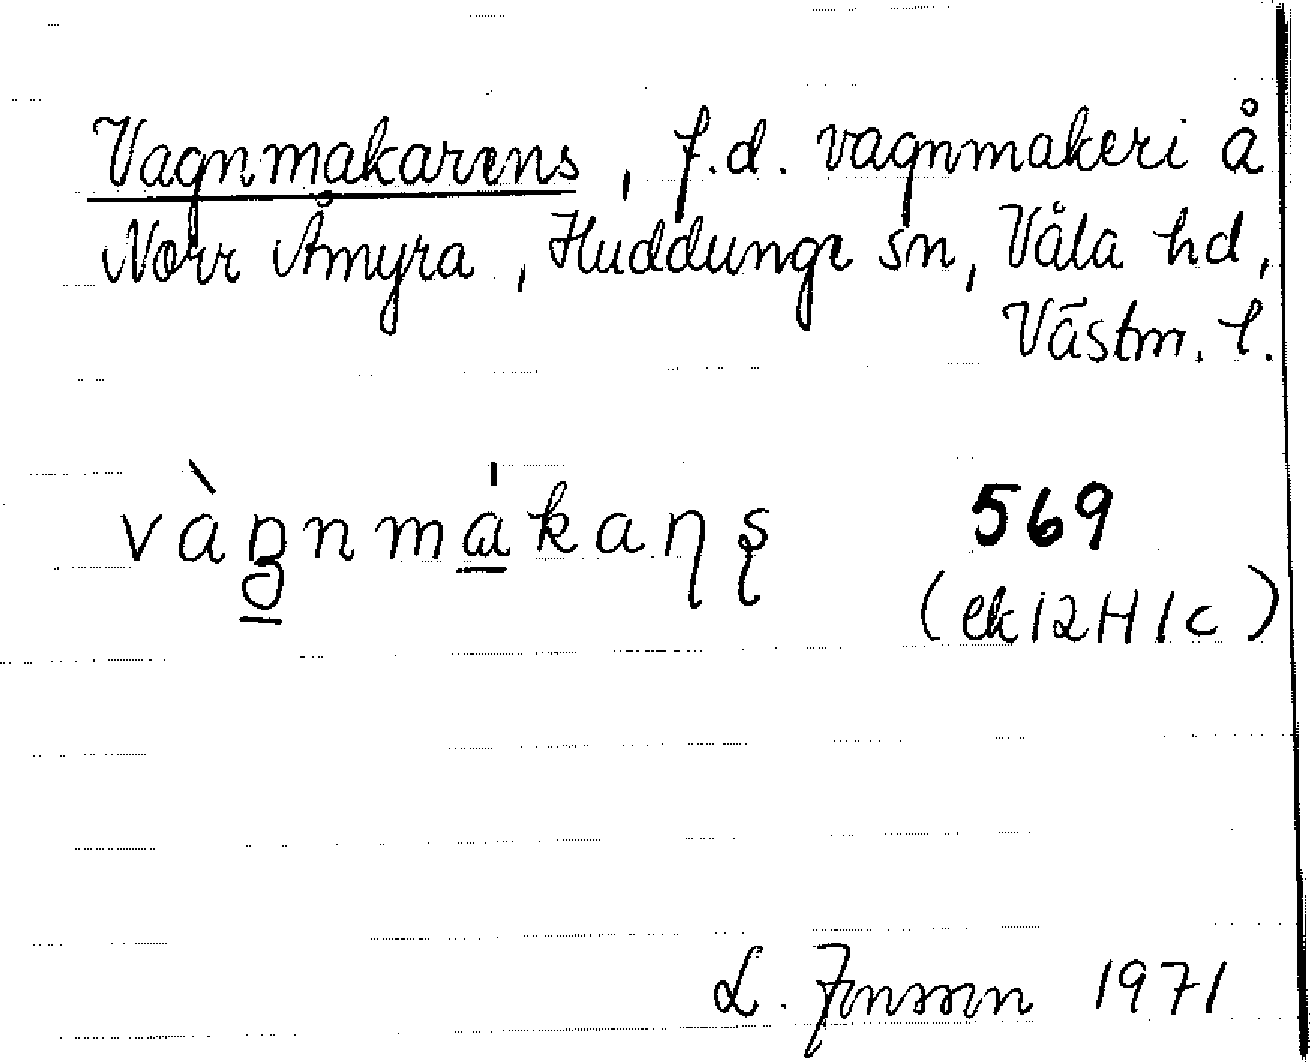 Vagnmakarens, f.d. vagnmakeri å
Norr Åmyra, Huddunge sn, Våla hd,
Västm. l.
vàgnmákaɳʂ 569
(ek 12H1c)
L. Jonsson 1971